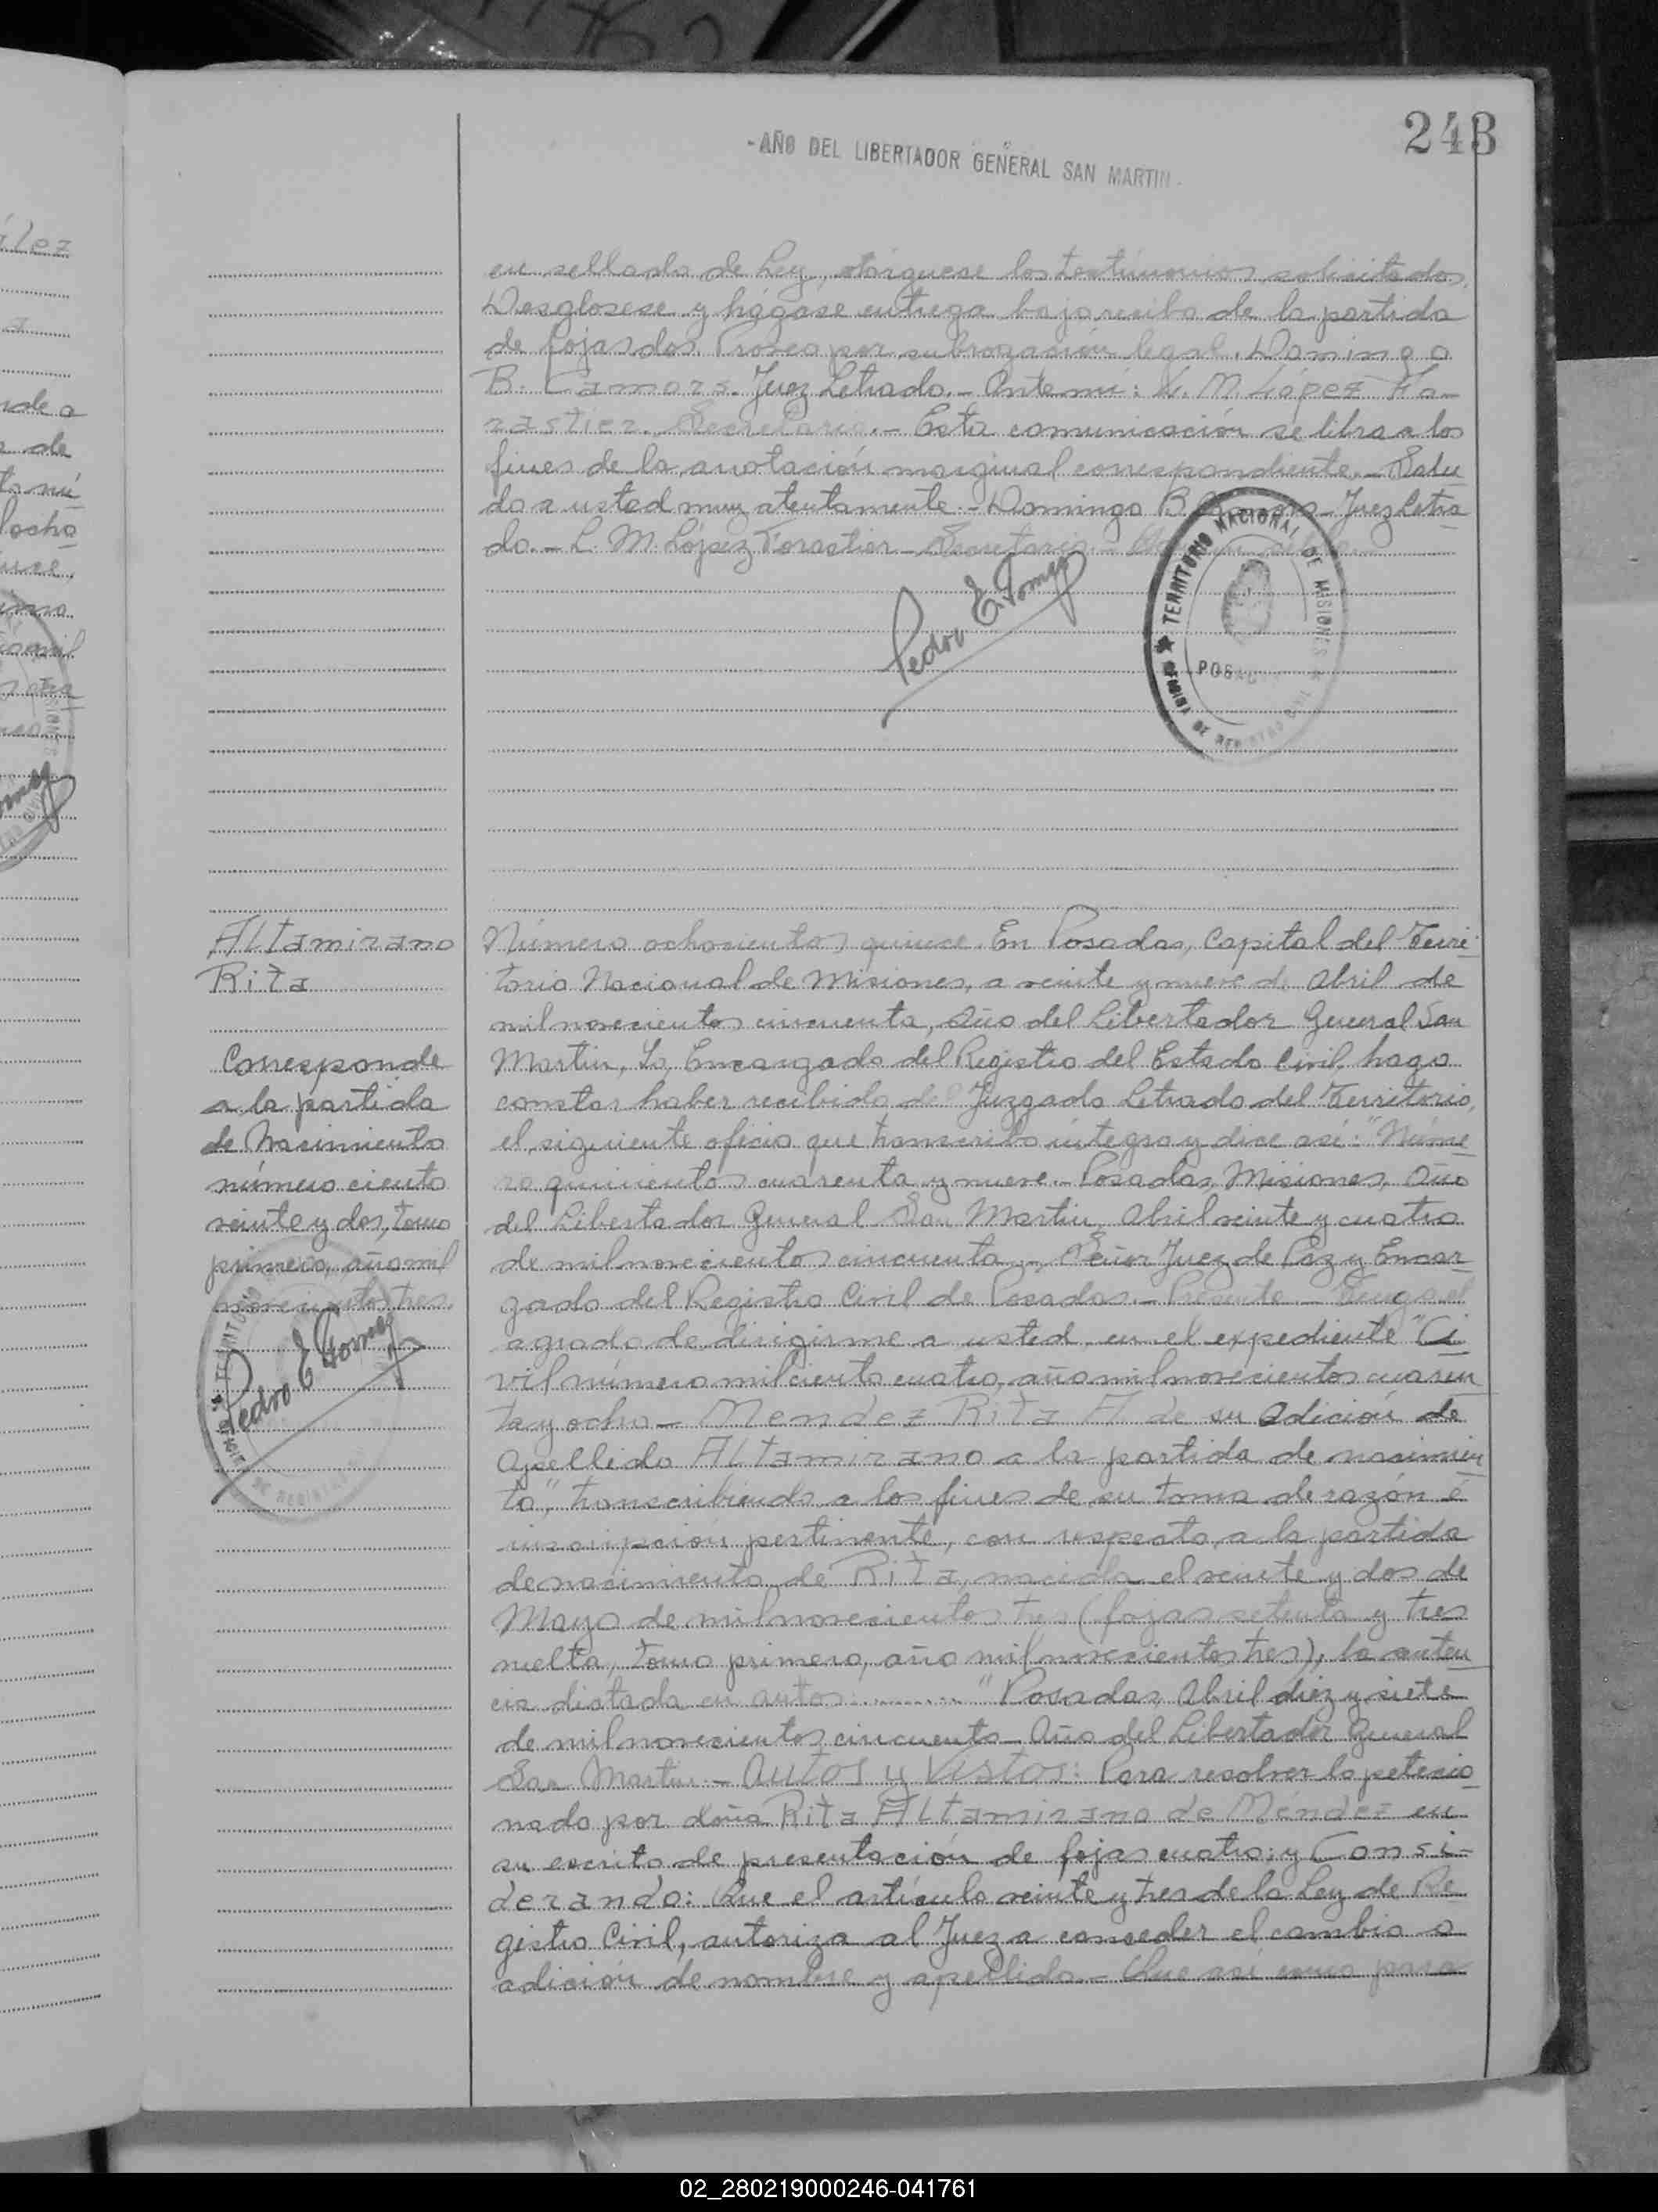 243
- AÑO DEL LIBERTADOR GENERAL SAN MARTIN -
en sellado de Ley, otórguese los testimonios solicitados.
Desglosese y hágase entrega bajo recibo de la partida
de fojas dos. Proveo por subrogación legal. Domingo
B. Camors. Juez Letrado.- Ante mí: L. M. López Fo-
rastier. Secretario.- Esta comunicación se libra a los
fines de la anotación marginal correspondiente.- Salu
do a usted muy atentamente.- Domingo B. - Juez Letra
do.- L. M. López Forastier - Secretario -
Pedro E Gomez
TERRITORIO NACIONAL DE MISIONES
POSAD
Altamirano
Rita
Corresponde
a la partida
de Nacimiento
número ciento
veinte y dos, tomo
primero, año mil
novecientos tres.
Pedro E Gomez
Número ochocientos quince. En Posadas, Capital del Terri-
torio Nacional de Misiones, a veinte y nueve de Abril de
mil novecientos cincuenta, Año del Libertador General San
Martin, Yo, Encargado del Registro del Estado Civil, hago
constar haber recibido del Juzgado Letrado del Territorio,
el siguiente oficio que transcribo íntegro y dice así: "Núme
ro quinientos cuarenta y nueve.- Posadas, Misiones, Año
del Libertador General San Martin, Abril veinte y cuatro
de mil novecientos cincuenta.- Señor Juez de Paz y Encar
gado del Registro Civil de Posadas.- Presente.- Tengo el
agrado de dirigirme a usted, en el expediente "Ci
vil número mil ciento cuatro, año mil novecientos cuaren
ta y ocho - Mendez Rita A de su Adición de
Apellido Altamirano a la partida de nacimien
to", transcribiendo a los fines de su toma de razón é
inscripción pertinente, con respecto a la partida
de nacimiento de Rita, nacida el veinte y dos de
Mayo de mil novecientos tres (fojas setenta y tres
vuelta, tomo primero, año mil novecientos tres), la senten
cia dictada en autos: ......... "Posadas, Abril diez y siete
de mil novecientos cincuenta - Año del Libertador General
San Martin.- Autos y Vistos: Para resolver lo peticio
nado por doña Rita Altamirano de Méndez en
su escrito de presentación de fojas cuatro: y Consi-
derando: Que el artículo veinte y tres de la Ley de Re
gistro Civil, autoriza al Juez a conceder el cambio o
adición de nombre y apellido.- Que así como para
02_280219000246-041761